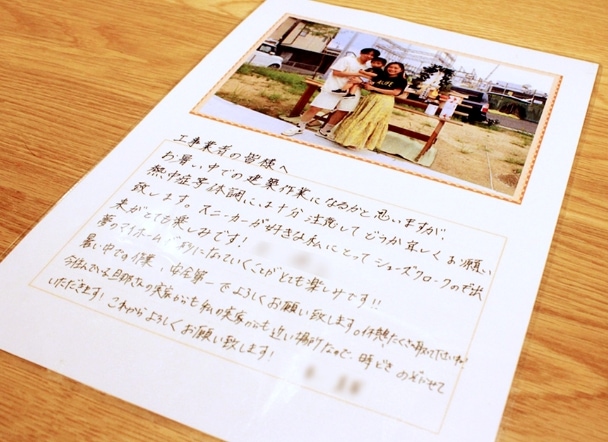 工事業者の皆様へ
お暑い中での建築作業になるかと思いますが、
熱中症等体調には十分注意してどうか宜しくお願い
致します。スニーカーが好きな私にとってシューズクロークの完成
来がとても楽しみです!
夢のマイホーム になっていくことがとても楽しみです!!
暑い中での作業、安全第一でよろしくお願い致します。休憩たくさん取って下さいね!
今住んでいる旦那さんの実家からも私の実家からも近い場所なので、時どき のぞかせて
いただきます! これからよろしくお願い致します!